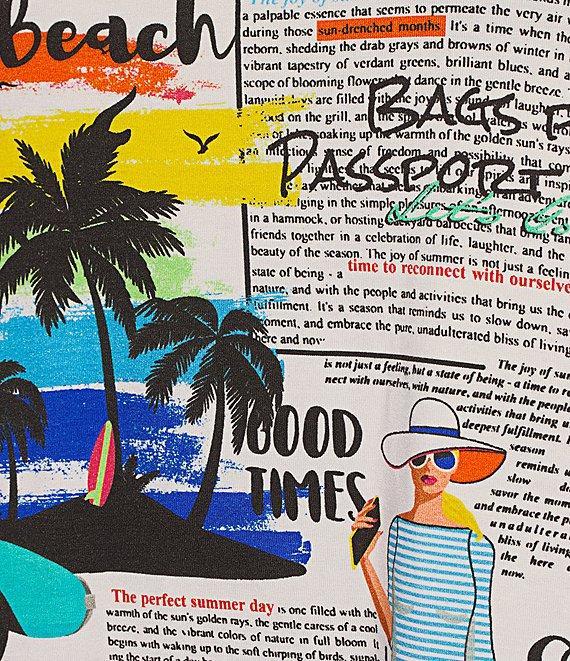 Beach
The joy of su
a palpable essence that seems to permeate the very air
during those sun-drenched months. It's a time when the
reborn, shedding the drab grays and browns of winter in
vibrant tapestry of verdant greens, brilliant blues, and a
scope of blooming flowers dance in the gentle breeze.
are filled with the joy
BAGS
food on the grill, and the
soaking up the warmth of the golden sun's rays
sense of freedom and possibility that
PASSPORT
Let's Go
in the simple pleasures of the afternoon
in a hammock, or hosting backyard barbecues that bring
friends together in a celebration of life, laughter, and the
beauty of the season. The joy of summer is not just a feelin
state of being - a time to reconnect with ourselve
nature, and with the people and activities that bring us the
fulfillment. It's a season that reminds us to slow down, sa
moment, and embrace the pure, unadulterated bliss of living
here and now
is not just a feeling, but a state of being - a time to re
nect with ourselves, with nature, and with the people
The joy of sun
activities that bring u
deepest fulfillment. I
season
reminds u
slow do
savor the mom
and embrace the p
unadultera
bliss of living
the here a
now.
GOOD
TIMES
The perfect summer day is one filled with the
warmth of the sun's golden rays, the gentle caress of a cool
breeze, and the vibrant colors of nature in full bloom. It
begins with waking up to the soft chirping of birds, signal-
ing the start of a day